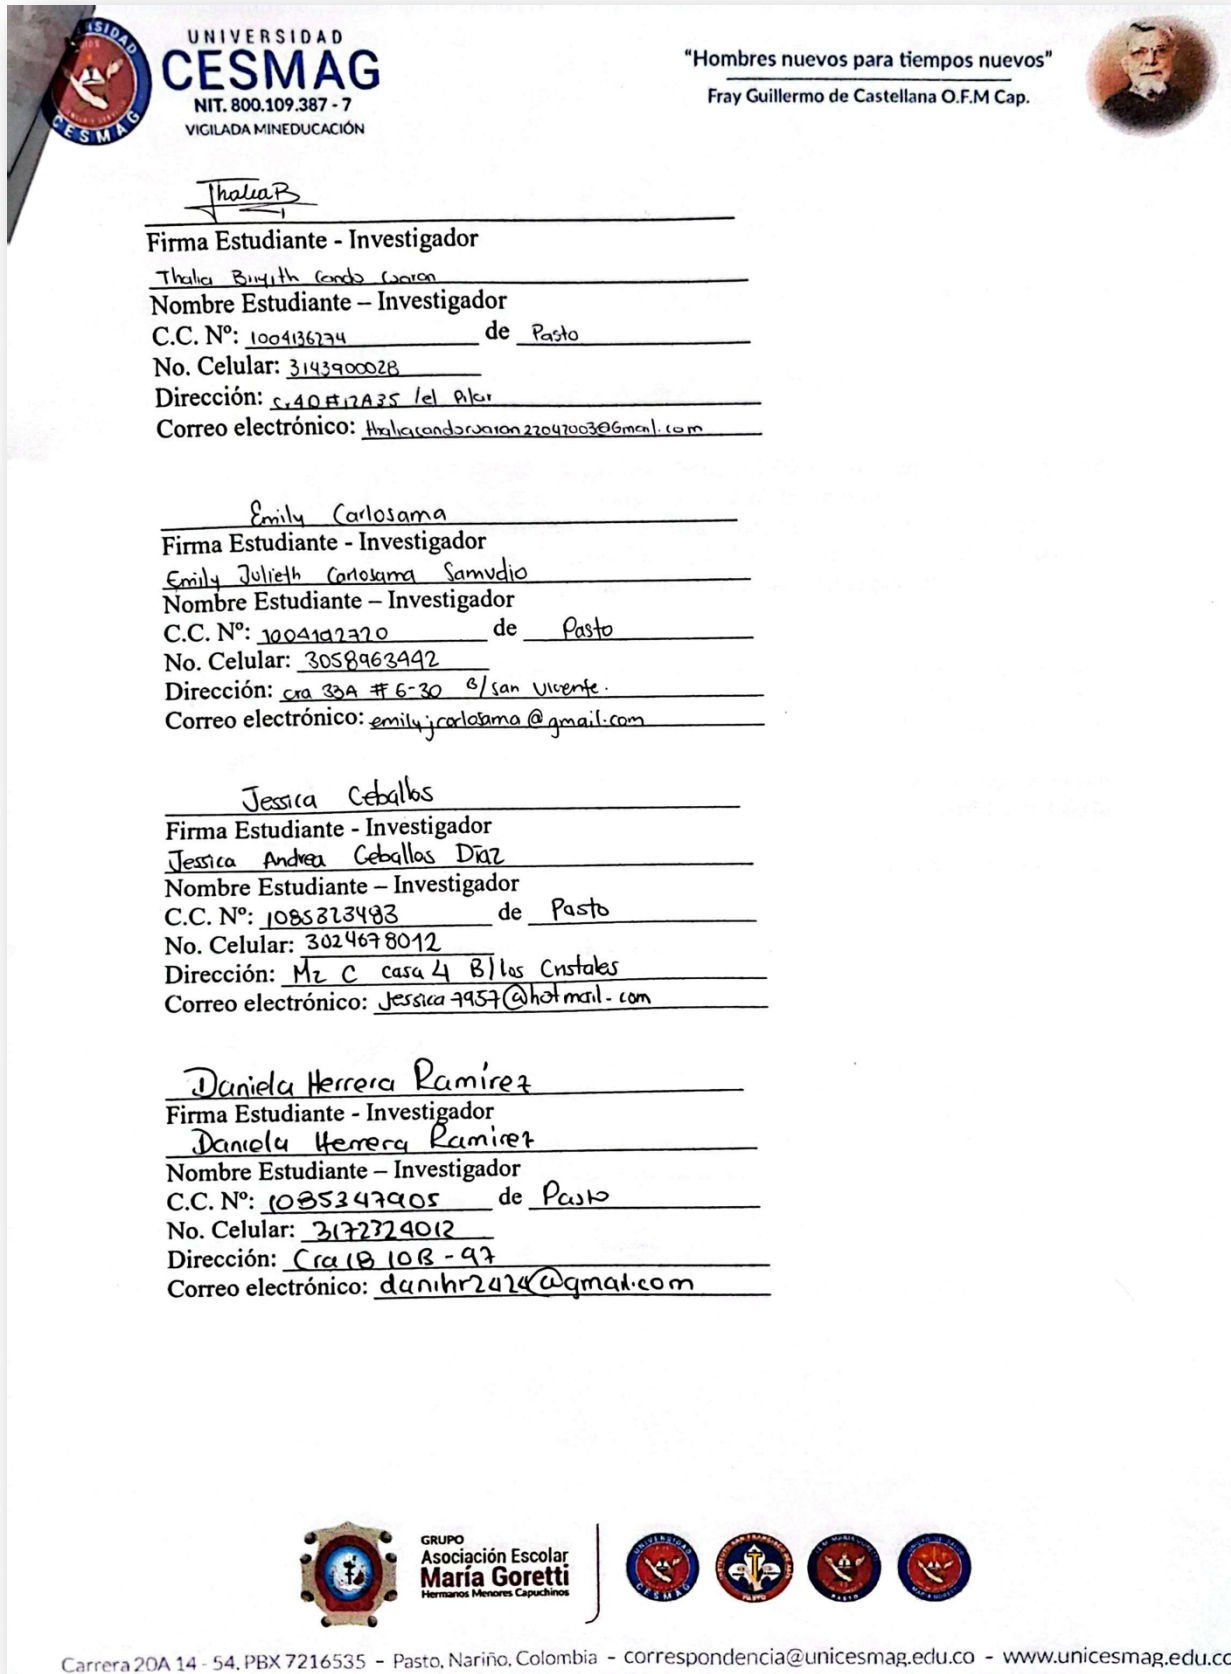 UNIVERSIDAD
CESMAG
NIT. 800.109.387 - 7
VIGILADA MINEDUCACIÓN
"Hombres nuevos para tiempos nuevos"
Fray Guillermo de Castellana O.F.M Cap.
ThaliaB
Firma Estudiante - Investigador
Thalia
Nombre Estudiante – Investigador
C.C. Nº: 1004136274 de Pasto
No. Celular: 3143900028
Dirección: /el Pilar
Correo electrónico:
Emily Carlosama
Firma Estudiante - Investigador
Emily Julieth Carlosama Samudio
Nombre Estudiante – Investigador
C.C. Nº: 1004192720 de Pasto
No. Celular: 3058963442
Dirección: cra 33A # 6-30 B/san Vicente.
Correo electrónico: emilyjcarlosama@gmail.com
Jessica Ceballos
Firma Estudiante - Investigador
Jessica Andrea Ceballos Díaz
Nombre Estudiante – Investigador
C.C. Nº: 1085323483 de Pasto
No. Celular: 3024678012
Dirección: Mz C casa 4 B/los Cristales
Correo electrónico: Jessica7957@hotmail.com
Daniela Herrera Ramírez
Firma Estudiante - Investigador
Daniela Herrera Ramirez
Nombre Estudiante – Investigador
C.C. Nº: 1085347905 de Pasto
No. Celular: 3172324012
Dirección: Cra 18 10B - 97
Correo electrónico: danihr2424@gmail.com
GRUPO
Asociación Escolar
María Goretti
Hermanos Menores Capuchinos
Carrera 20A 14 - 54, PBX 7216535 - Pasto, Nariño, Colombia - correspondencia@unicesmag.edu.co - www.unicesmag.edu.co